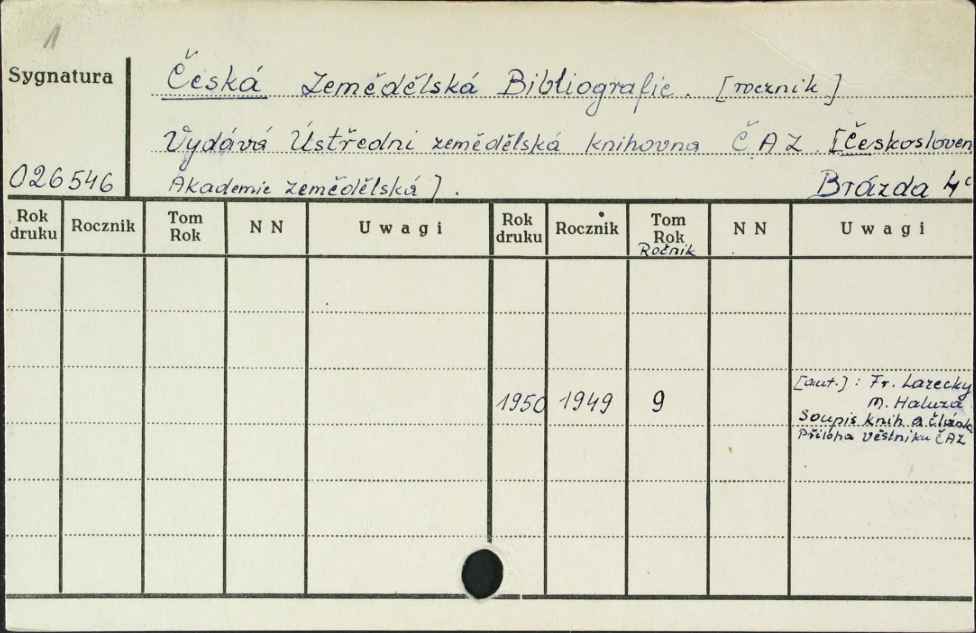 1
Sygnatura
Česká Zemědělská Bibliografie. [rocznik]
Vydává Ústřední zemědělská knihovna ČAZ. [Českosloven
026546
Akademie zemědělská].
Brázda 4°
Rok druku Rocznik Tom Rok NN Uwagi Rok druku Rocznik Tom Rok Ročnik NN Uwagi
1950 1949 9 [aut.]: Fr. Lazecky
M. Haluza
Soupis knih a článk
Příloha věstniku ČAZ